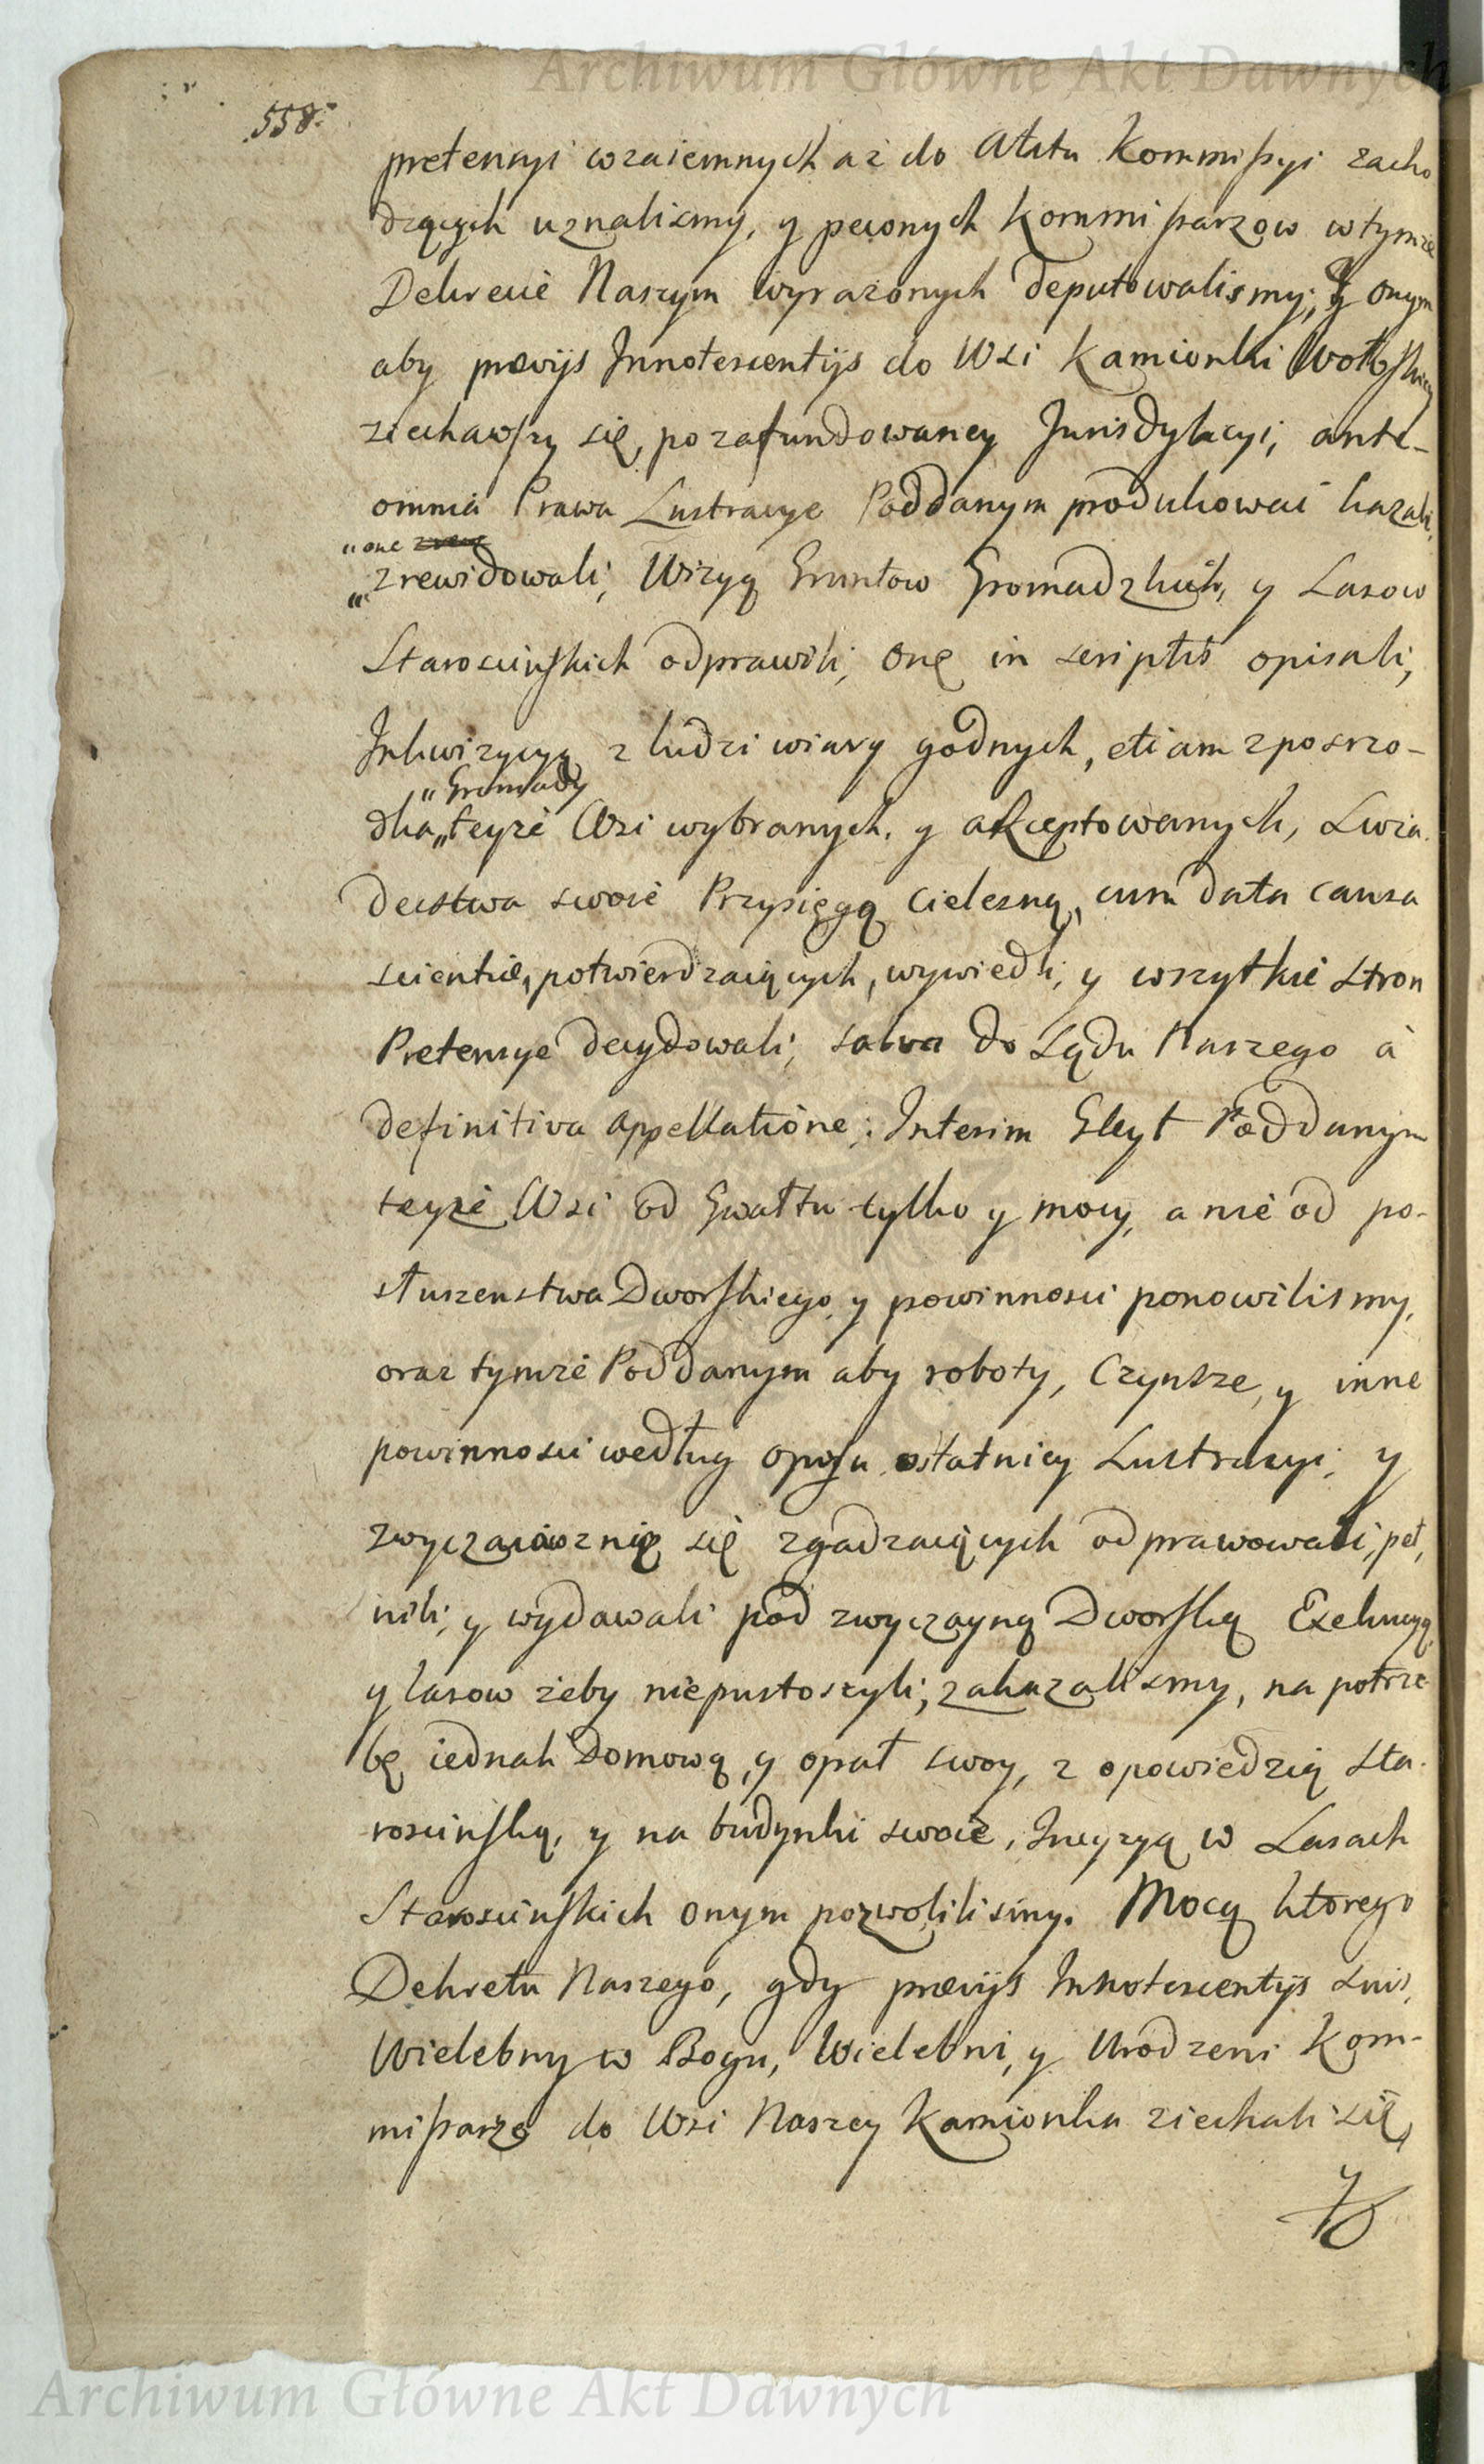 Archiwum Główne Akt Dawnych
558.
pretensyi wzaiemnych aż do Aktu Kommißyi zacho
dzących uznalismy, y pewnych Kommißarzow w tymże
Dekrecie Naszym wyrażonych deputowalismy, y onym
aby prævijs Innotescentijs do Wsi Kamionki Wołoskiey
ziechawszy się, po zafundowaney Jurisdykcyi, ante
omnia Prawa Lustracye Poddanym produkowac kazali,
„one
„zrewidowali, Wizyą Gruntow Gromadzkich, y Lasow
Staroscinskich odprawili, onę in scriptis opisali,
Inkwizycyą z ludzi wiary godnych, etiam zposrzo-
„Gromady
dka„teyże Wsi wybranych, y akceptowanych, Swia
dectwa swoie Przysięgą Cielesną, cum data causa
scientiæ, potwierdzaiących, wywiedli, y wszytkie Stron
Pretensye decydowali, salva do Sądu Naszego à
definitiva appellatione; Interim Gleyt Poddanym
teyże Wsi od Gwałtu tylko y mocy, a nie od po-
słuszenstwa Dworskiego, y powinnosci ponowilismy,
oraz tymże Poddanym aby roboty, Czynsze, y inne
powinnosci według opisu ostatniey Lustracyi, y
zwyczaiów z nią się zgadzaiących odprawowali, peł,
nili, y wydawali pod zwyczayną Dworską Exekucyą
y lasow żeby niepustoszyli, zakazalismy, na potrze
bę iednak Domową, y opał swoy, z opowiedzią Sta-
roscinską, y na budynki swoie, Incyzyą w Lasach
Staroscinskich onym pozwolilismy. Mocą ktorego
Dekretu Naszego, gdy prævijs Innotescentijs
Wielebny w Bogu, Wielebni, y Urodzeni Kom-
mißarze do Wsi Naszey Kamionka ziechali się,
y
Archiwum Główne Akt Dawnych